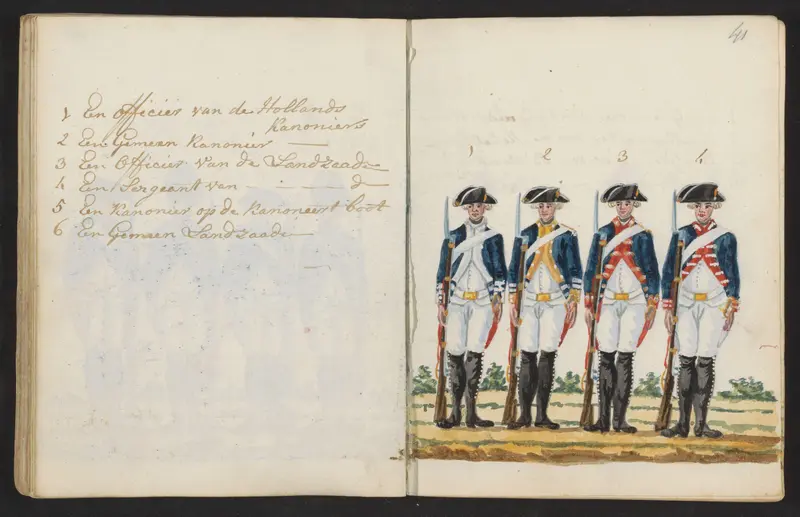 1 En officier van de Hollands
Kanoniers
2 En Gemeen Kanonier —
3 En Officier van de Landzaade
4 En Sergeant van — — — d
5 En Kanonier op de Kanoneert boot
6 En Gemeen Landzaade
41
1 2 3 4